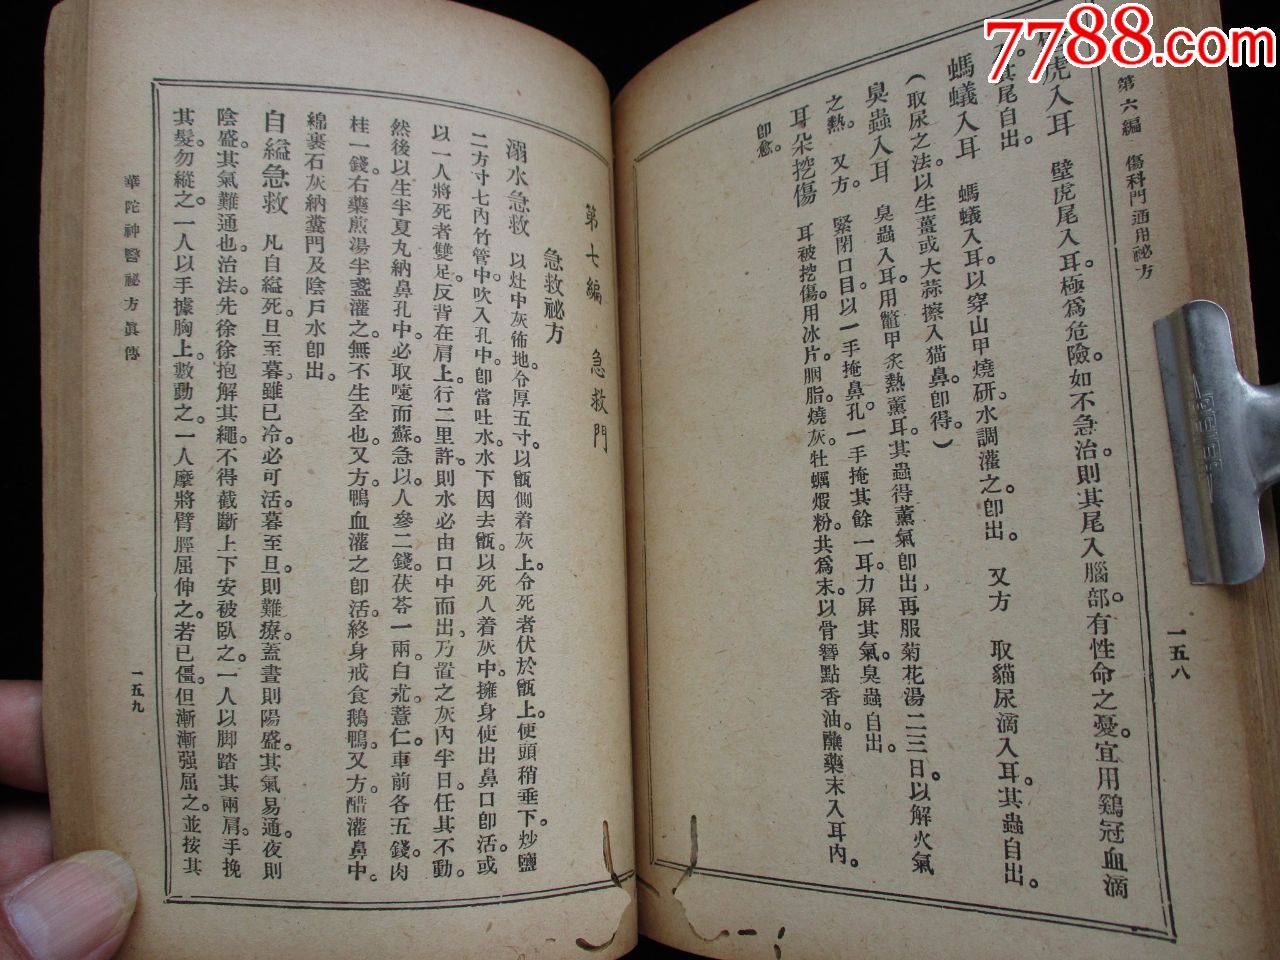 7788.com
第六編 傷科門通用祕方
一五八
虎入耳 壁虎尾入耳極爲危險。如不急治。則其尾入腦部。有性命之憂。宜用鷄冠血滴
其尾自出。
螞蟻入耳 螞蟻入耳以穿山甲燒研。水調灌之卽出。 又方 取貓尿滴入耳。其蟲自出。
(取尿之法。以生薑或大蒜擦入猫鼻。卽得。)
臭蟲入耳 臭蟲入耳。用鼈甲炙熱薰耳。其蟲得薰氣卽出。再服菊花湯二三日。以解火氣
之熱。 又方 緊閉口目。以一手掩鼻孔。一手掩其餘一耳。力屏其氣。臭蟲自出。
耳朵挖傷 耳被挖傷。用冰片。胭脂。燒灰。牡蠣煆粉。共爲末。以骨簪點香油。蘸藥末入耳內。
卽愈。
第七編 急救門
急救祕方
溺水急救 以灶中灰佈地。令厚五寸。以甑側着灰上。令死者伏於甑上。使頭稍垂下。炒鹽
二方寸七內竹管中。吹入孔中。卽當吐水。水下因去甑。以死人着灰中。擁身使出鼻口卽活。或
以一人將死者雙足。反背在肩上。行二里許。則水必由口中而出。乃置之灰內半日。任其不動。
然後以生半夏丸納鼻孔中。必取嚏而蘇。急以人參二錢。茯苓一兩。白朮。薏仁。車前各五錢。肉
桂一錢。右藥煎湯半盞灌之。無不生全也。又方。鴨血灌之卽活。終身戒食鵝鴨。又方。醋灌鼻中。
綿裹石灰納糞門及陰戶水卽出。
自縊急救 凡自縊死。旦至暮。雖已冷。必可活。暮至旦。則難療。蓋晝則陽盛。其氣易通。夜則
陰盛。其氣難通也。治法。先徐徐抱解其繩。不得截斷上下安被臥之。一人以脚踏其兩肩。手挽
其髮。勿縱之。一人以手據胸上。數動之。一人摩將臂脛屈伸之。若已僵。但漸漸强屈之。並按其
華陀神醫祕方眞傳
一五九